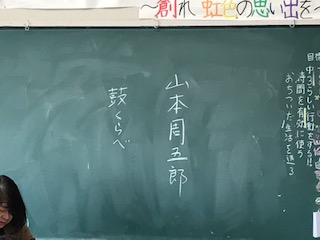 ～創れ 虹色の思い出を～
山本周五郎
鼓くらべ
中3らしい行動をする!!
時間を有効に使う
おちついた生活を送る